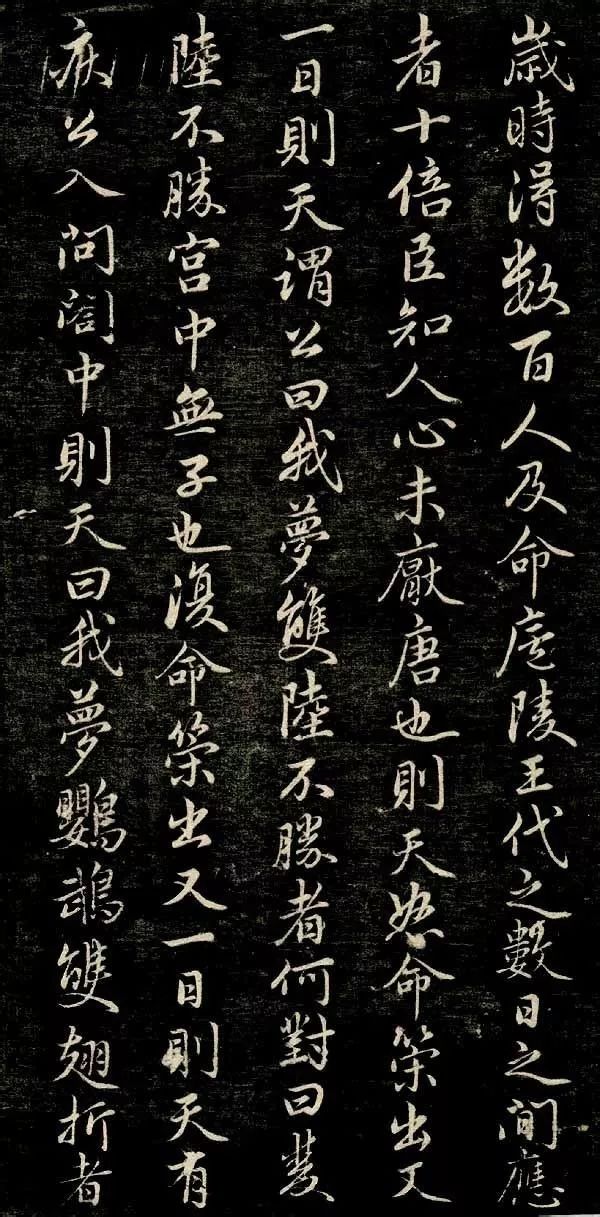 歳時得数百人及命廬陵王代之數日之間應
者十倍臣知人心未厭唐也則天怒命策出又
一日則天謂公曰我夢雙陸不勝者何對曰雙
陸不勝宫中無子也復命策出又一日則天有
疾公入問閤中則天曰我夢鸚鵡雙翅折者